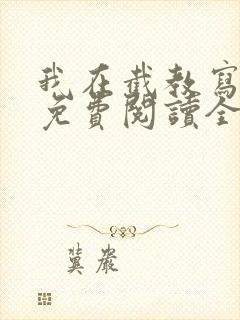 我在截教寫
免費閱讀全
冀嚴